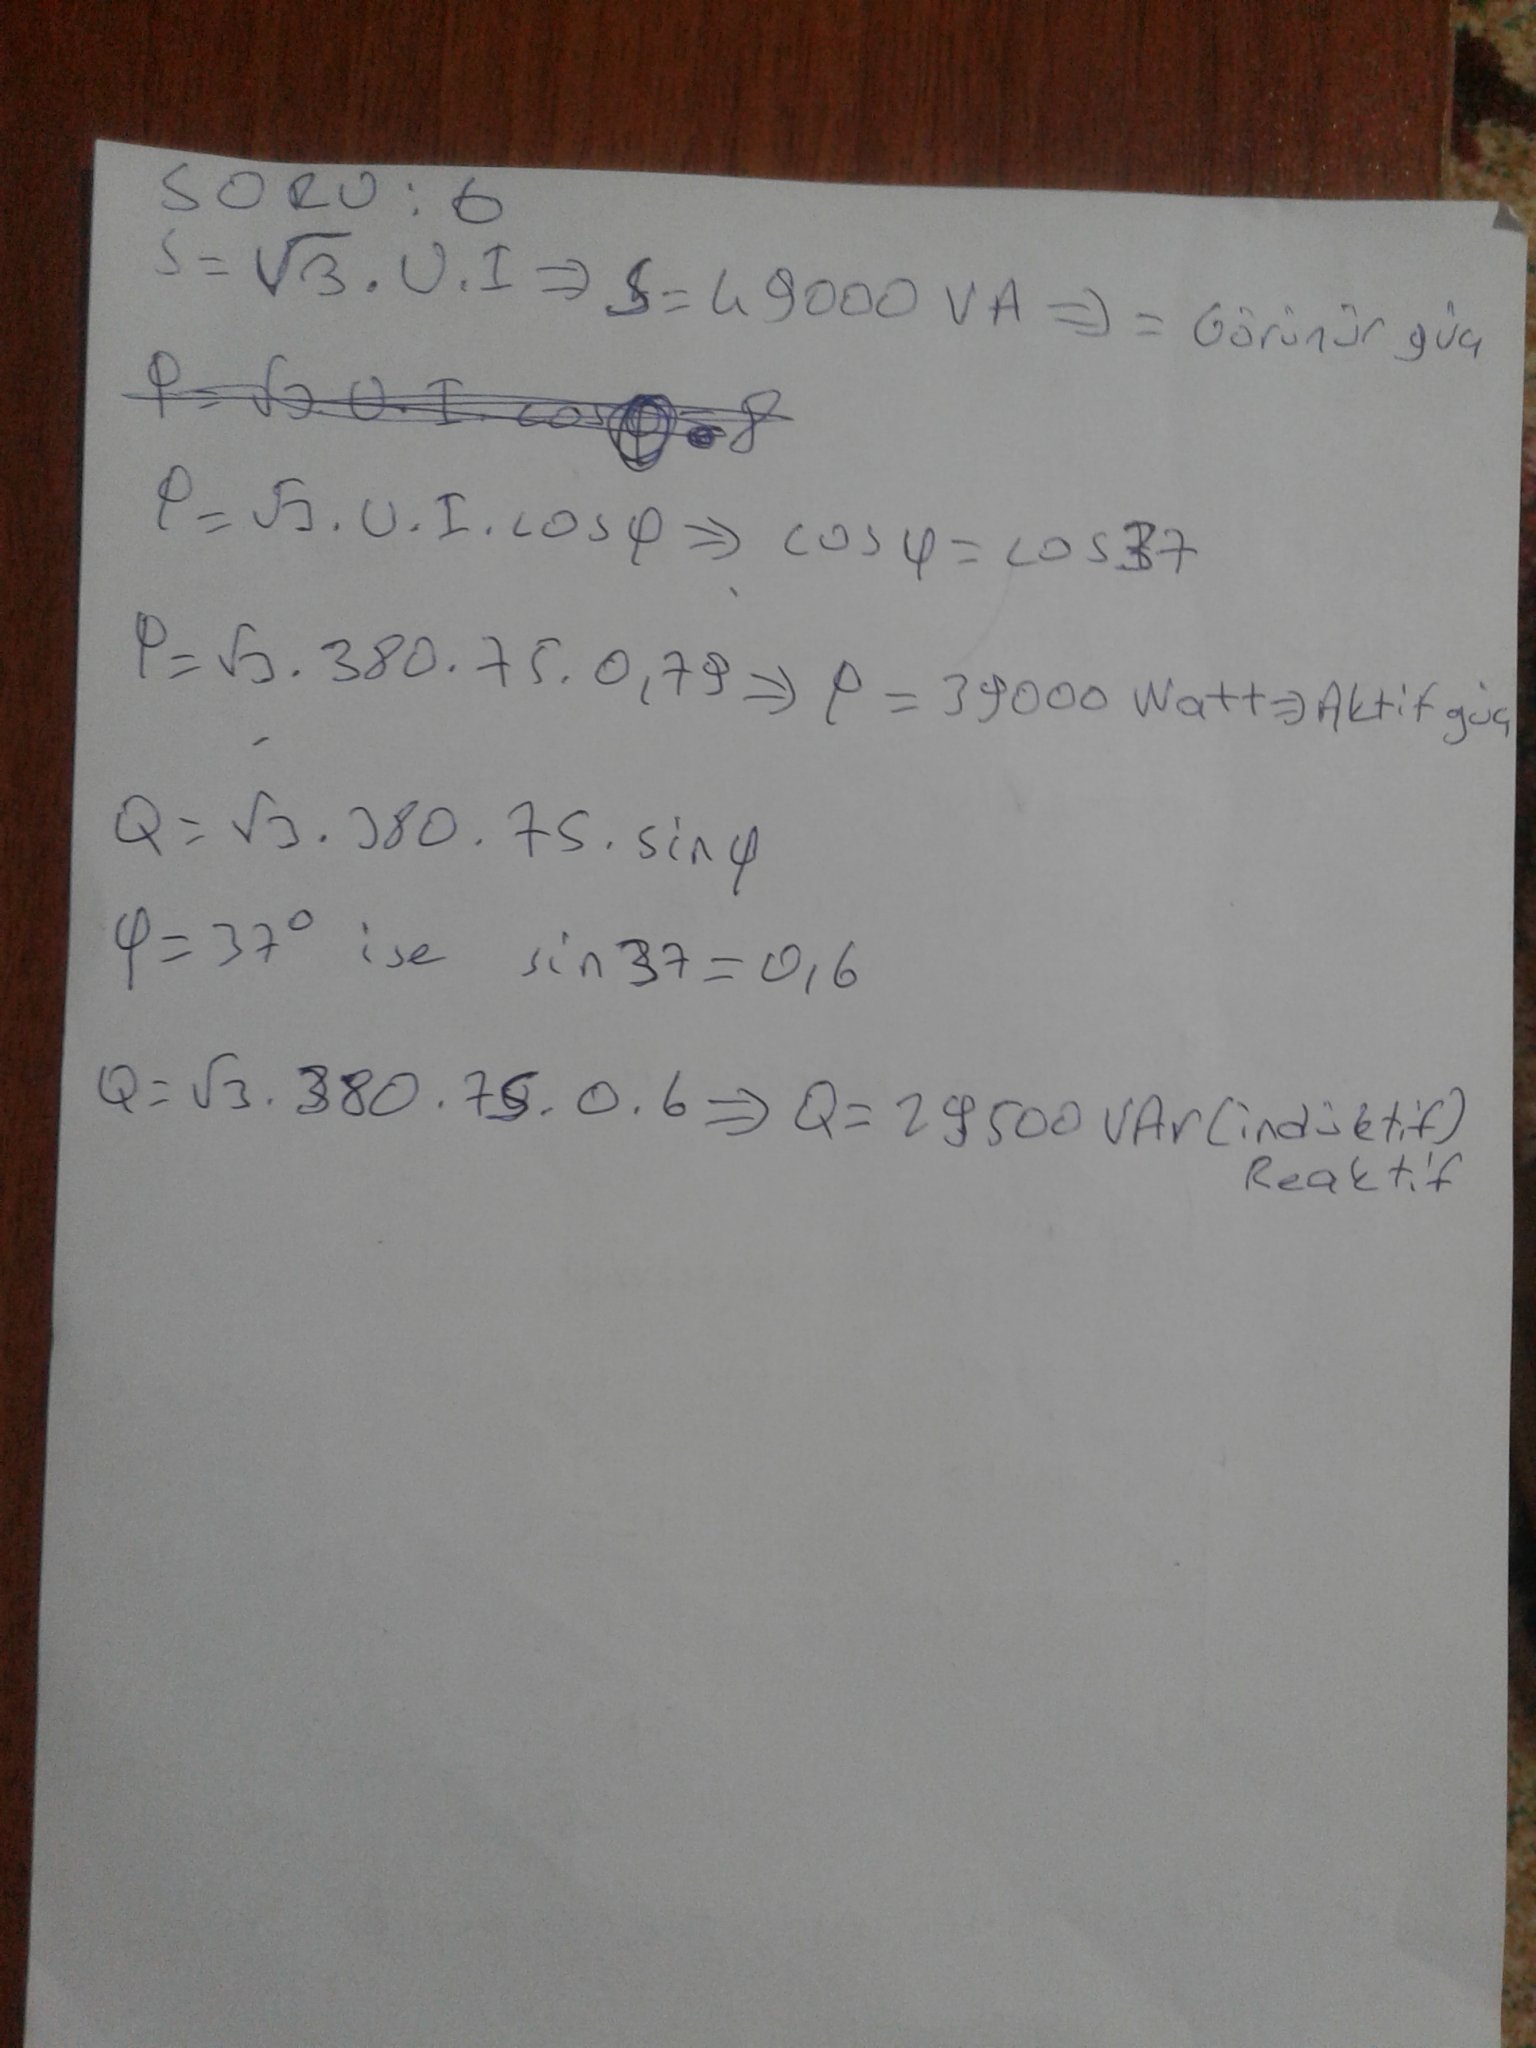 SORU: 6
S=√3.U.I⇒S=49000 VA⇒= Görünür güç
P=√3.U.I.cosφ=8
P=√3.U.I.cosφ⇒ cosφ=cos37
P=√3.380.75.0,79⇒ P=39000 Watt⇒Aktif güç
Q=√3.380.75.sinφ
φ=37° ise sin37=0,6
Q=√3.380.75.0.6⇒ Q=29500 VAr(indüktif)
Reaktif